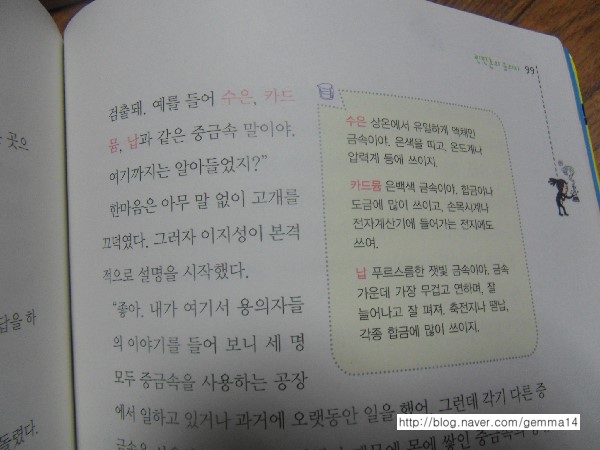 99
검출돼. 예를 들어 수은, 카드
뮴, 납과 같은 중금속 말이야.
여기까지는 알아들었지?"
한마음은 아무 말 없이 고개를
끄덕였다. 그러자 이지성이 본격
적으로 설명을 시작했다.
"좋아. 내가 여기서 용의자들
의 이야기를 들어 보니 세 명
모두 중금속을 사용하는 공장
에서 일하고 있거나 과거에 오랫동안 일을 했어. 그런데 각기 다른 중
수은 상온에서 유일하게 액체인
금속이야. 은색을 띠고, 온도계나
압력계 등에 쓰이지.
카드뮴 은백색 금속이야. 합금이나
도금에 많이 쓰이고, 손목시계나
전자계산기에 들어가는 전지에도
쓰여.
납 푸르스름한 잿빛 금속이야. 금속
가운데 가장 무겁고 연하며, 잘
늘어나고 잘 펴져. 축전지나 땜납,
각종 합금에 많이 쓰이지.
곳으
답을 하
들렸다.
http://blog.naver.com/gemma14